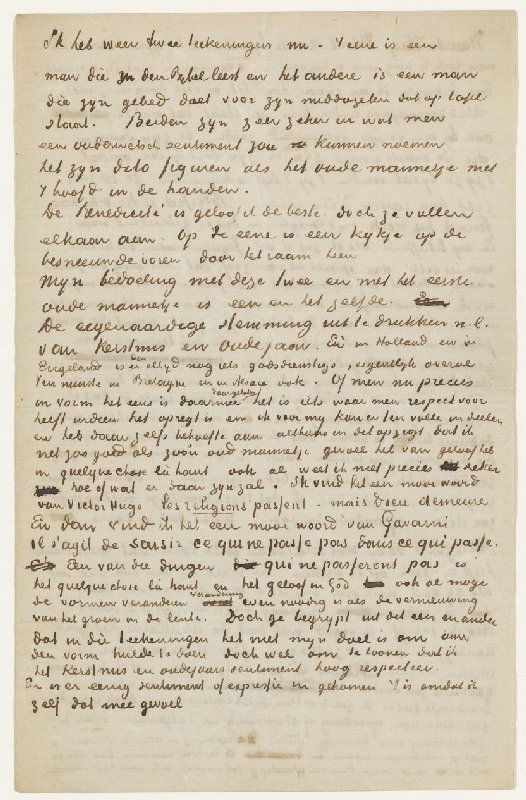 Ik heb weer twee teekeningen nu. 't eene is een
man die in den Bijbel leest en het andere is een man
die zyn gebed doet voor zyn middageten dat op tafel
staat. Beiden zyn zeer zeker in wat men
een ouderwetsch sentiment zou kunnen noemen
het zyn dito figuren als het oude mannetje met
't hoofd in de handen.
De Benedicité is geloof ik de beste. doch ze vullen
elkaar aan. Op de eene is een kykje op de
besneeuwde voren door het raam heen
Myn bedoeling met deze twee en met het eerste
oude mannetje is een en het zelfde.
De eigenaardige stemming uit te drukken n.l.
van Kerstmis en oudejaar. En in Holland en in
Engeland is dan altyd nog iets godsdienstigs, eigenlyk overal
Ten minste in Bretagne en in Alsace ook. Of men nu precies
in vorm het eens is daarmee het is iets waar men respect voor
heeft indien het opregt is en ik voor my kan er ten volle in deelen
en heb daar zelfs behoefte aan althans in dat opzigt dat ik
net zoo goed als zoo'n oud mannetje gevoel heb van geloof heb
in quelque chose là haut ook al weet ik niet precies
hoe of wat er daar zyn zal. Ik vind het een mooi woord
van Victor Hugo les religions passent. mais Dieu demeure
En dan vind ik het een mooi woord van Gavarni
il s'agit de saisir ce qui ne passe pas dans ce qui passe.
Een van die dingen qui ne passeront pas is
het quelque chose là haut en het geloof in God ook al moge
de vormen veranderen verandering even noodig is als de vernieuwing
van het groen in de lente. Doch ge begrypt uit dat een en ander
dat in die teekeningen het niet myn doel is om aan
den vorm hulde te doen doch wel om te toonen dat ik
het kerstmis en oudejaars sentiment hoog respecteer.
En is er eenig sentiment of expressie in gekomen 't is omdat ik
zelf dat mee gevoel